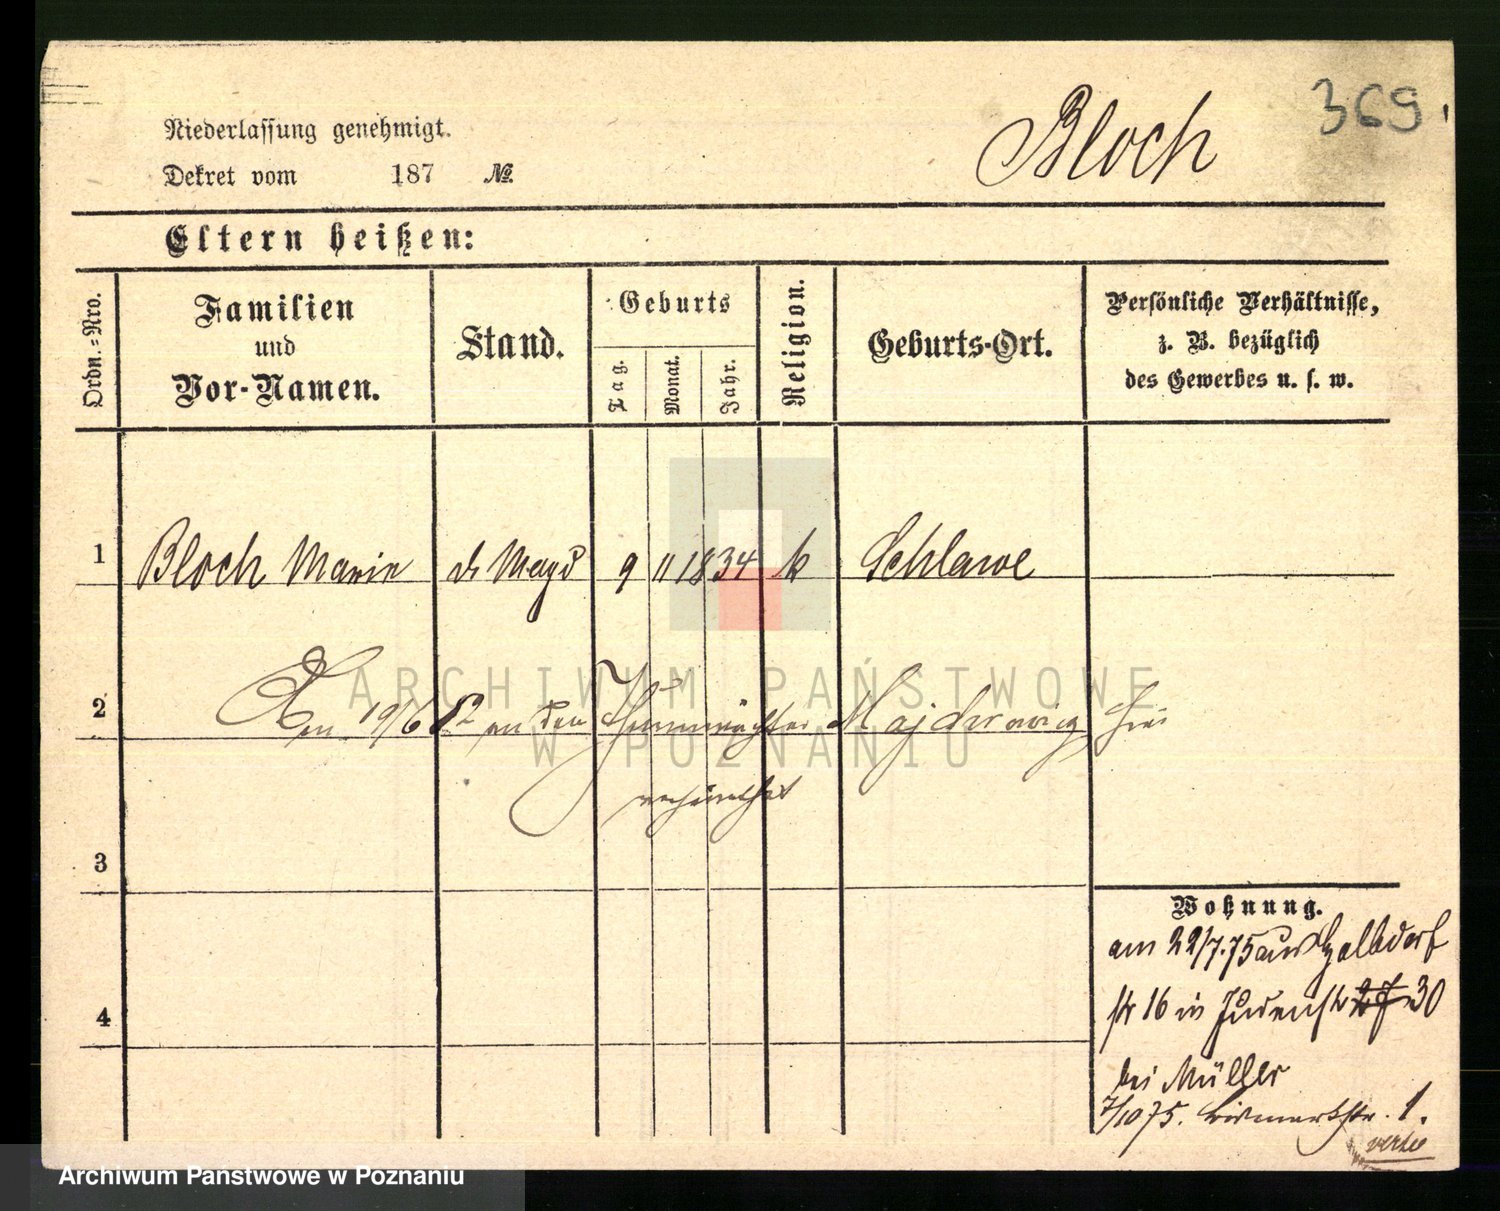 369.
Bloch
Niederlassung genehmigt.
Dekret vom 187 No.
Eltern heißen:
Ordn.=Nro.
Familien
und
Vor-Namen.
Stand.
Geburts
Tag.
Monat.
Jahr.
Religion.
Geburts-Ort.
Persönliche Verhältnisse,
z. B. bezüglich
des Gewerbes u. s. w.
1 Bloch Marie d. Magd 9 11 1834 k Schlawe
2 Den 19/6 82 an den Thurmwächter Majchrowicz hier
verheirathet
3
4
Wohnung.
am 22/7.75 aus Halbdorf
str 16 in Judenstr 27 30
bei Müller
7/10 75. Bismarckstr. 1.
verte
ARCHIWUM PAŃSTWOWE
W POZNANIU
Archiwum Państwowe w Poznaniu